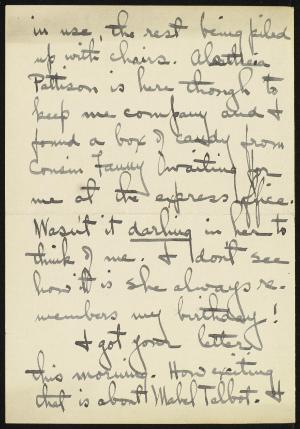 in use, the rest being piled
up with chairs. Alethea
Pattison is here though to
keep me company and I
found a box of candy from
Cousin Fanny waiting for
me at the express office.
Wasn't it darling in her to
think of me. I don't see
how it is she always re-
members my birthday!
I got your letter
this morning. How exciting
that is about Mabel Talbot. I